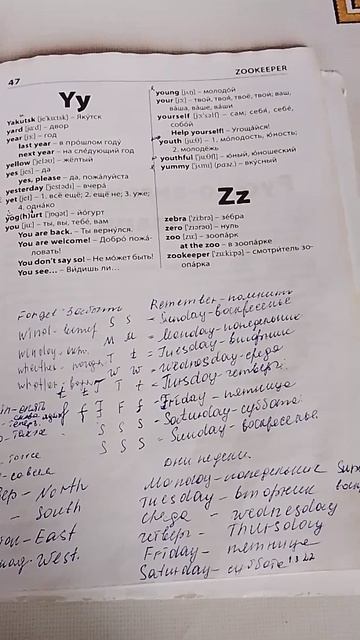 47
ZOOKEEPER
Yy
Yakutsk [jə'kutsk] – Якутск
yard [jɑ:d] – двор
year [jɪə] – год
last year – в прошлом году
next year – на следующий год
yellow ['jeləʊ] – жёлтый
yes [jes] – да
yes, please – да, пожалуйста
yesterday ['jestədɪ] – вчера
yet [jet] – 1. всё ещё; 2. ещё не; 3. уже;
4. однако
yog(h)urt ['jɒgət] – йогурт
you [ju:] – ты, вы, тебе, вам
You are back. – Ты вернулся.
You are welcome! – Добро пожа-
ловать!
You don't say so! – Не может быть!
You see... – Видишь ли...
young [jʌŋ] – молодой
your [jɔ:] – твой, твоя, твоё, твои; ваш,
ваша, ваше, ваши
yourself [jɔ:'self] – сам; себя, себе,
собой
Help yourself! – Угощайся!
youth [ju:θ] – 1. молодость, юность;
2. молодёжь
youthful ['ju:θfl] – юный, юношеский
yummy ['jʌmɪ] (разг.) – вкусный
Zz
zebra ['zebrə] – зебра
zero ['zɪərəʊ] – нуль
zoo [zu:] – зоопарк
at the zoo – в зоопарке
zookeeper ['zu:ki:pə] – смотритель зо-
опарка
Forget - забыть
Remember - помнить
S S - Sunday - воскресенье
M M - Monday - понедельник
T t = Tuesday - вторник
W w = Wednesday - среда
T t = Tursday - четверг
f f F f - Friday - пятница
S S - Saturday - суббота
S S S - Sunday - воскресенье
Дни недели.
North
Monday - понедельник
South
Tuesday - вторник
East
среда - wednesday
West.
четверг - Thursday
Friday - пятница
Saturday - суббота